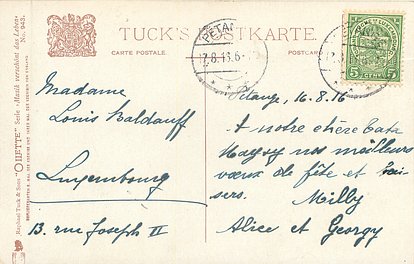 TUCK'S POSTKARTE
CARTE POSTALE. POSTCARD.
PETANGE
7.8.16.6-
5 CENTIMES
Raphael Tuck & Sons' "OILETTE" Serie „Musik verschönt das Leben“
No. 943.
Madame
Louis Baldauff
Luxembourg
13, rue Joseph II
Pétange, 16.8.16
A notre chère Tata
Maggy nos meilleurs
voeux de fête et bai-
sers. Milly
Alice et Georgy